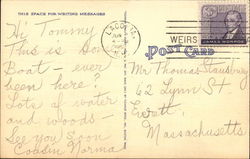 THIS SPACE FOR WRITING MESSAGES
Hi Tommy
This is Our
Boat - ever
been here?
Lots of water
and woods -
See you soon
Cousin Norma
WEIRS
JAMES MONROE
POST CARD
Mr Thomas
62 Lynn St.
Everett
Massachusetts